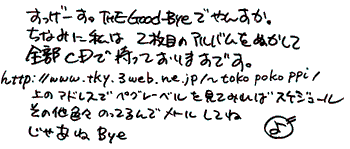 すっげーす。THE Good-Byeでやんすか。
ちなみに私は 2枚目のアルバムをぬかして
全部CDで持っておりますです。
http://www.tky.3web.ne.jp/~tokopokoppi/
上のアドレスでペグレーベルを見てみればスケジュール
その他色々のってるんでメールしてね
じゃあね Bye